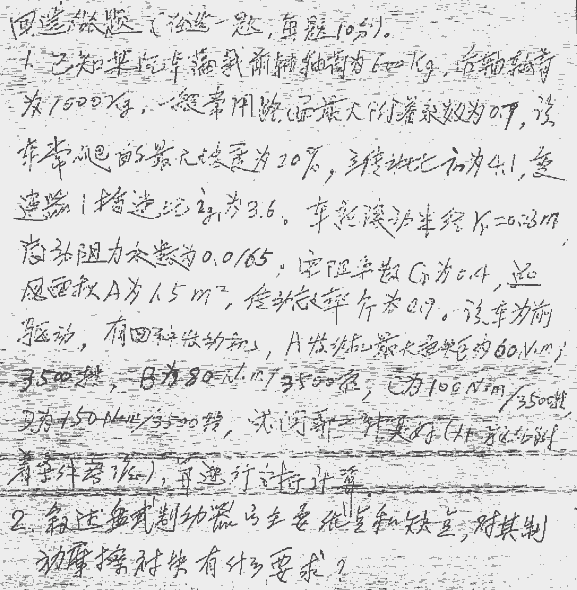 回答下题（任选一题，每题10分）。
1. 已知某汽车满载前轴轴荷为600Kg，后轴轴荷
为1000Kg，一般常用路面最大附着系数为0.7，该
车常爬的最大坡度为20%，主传动比i₀为4.1，变
速器1挡速比ig₁为3.6。车轮滚动半径r=0.3m，
滚动阻力系数为0.0165，空阻系数C_D为0.4，迎
风面积A为1.5m²，传动效率η为0.9。该车为前
驱动，有四种发动机，A发动机最大扭矩为60N·m/
3500转，B为80N·m/3500转，C为100N·m/3500转，
D为150N·m/3500转，试问哪一种最好（从
着条件考虑），再进行计算。
2. 叙述盘式制动器的主要优点和缺点，对其制
动摩擦衬块有什么要求？